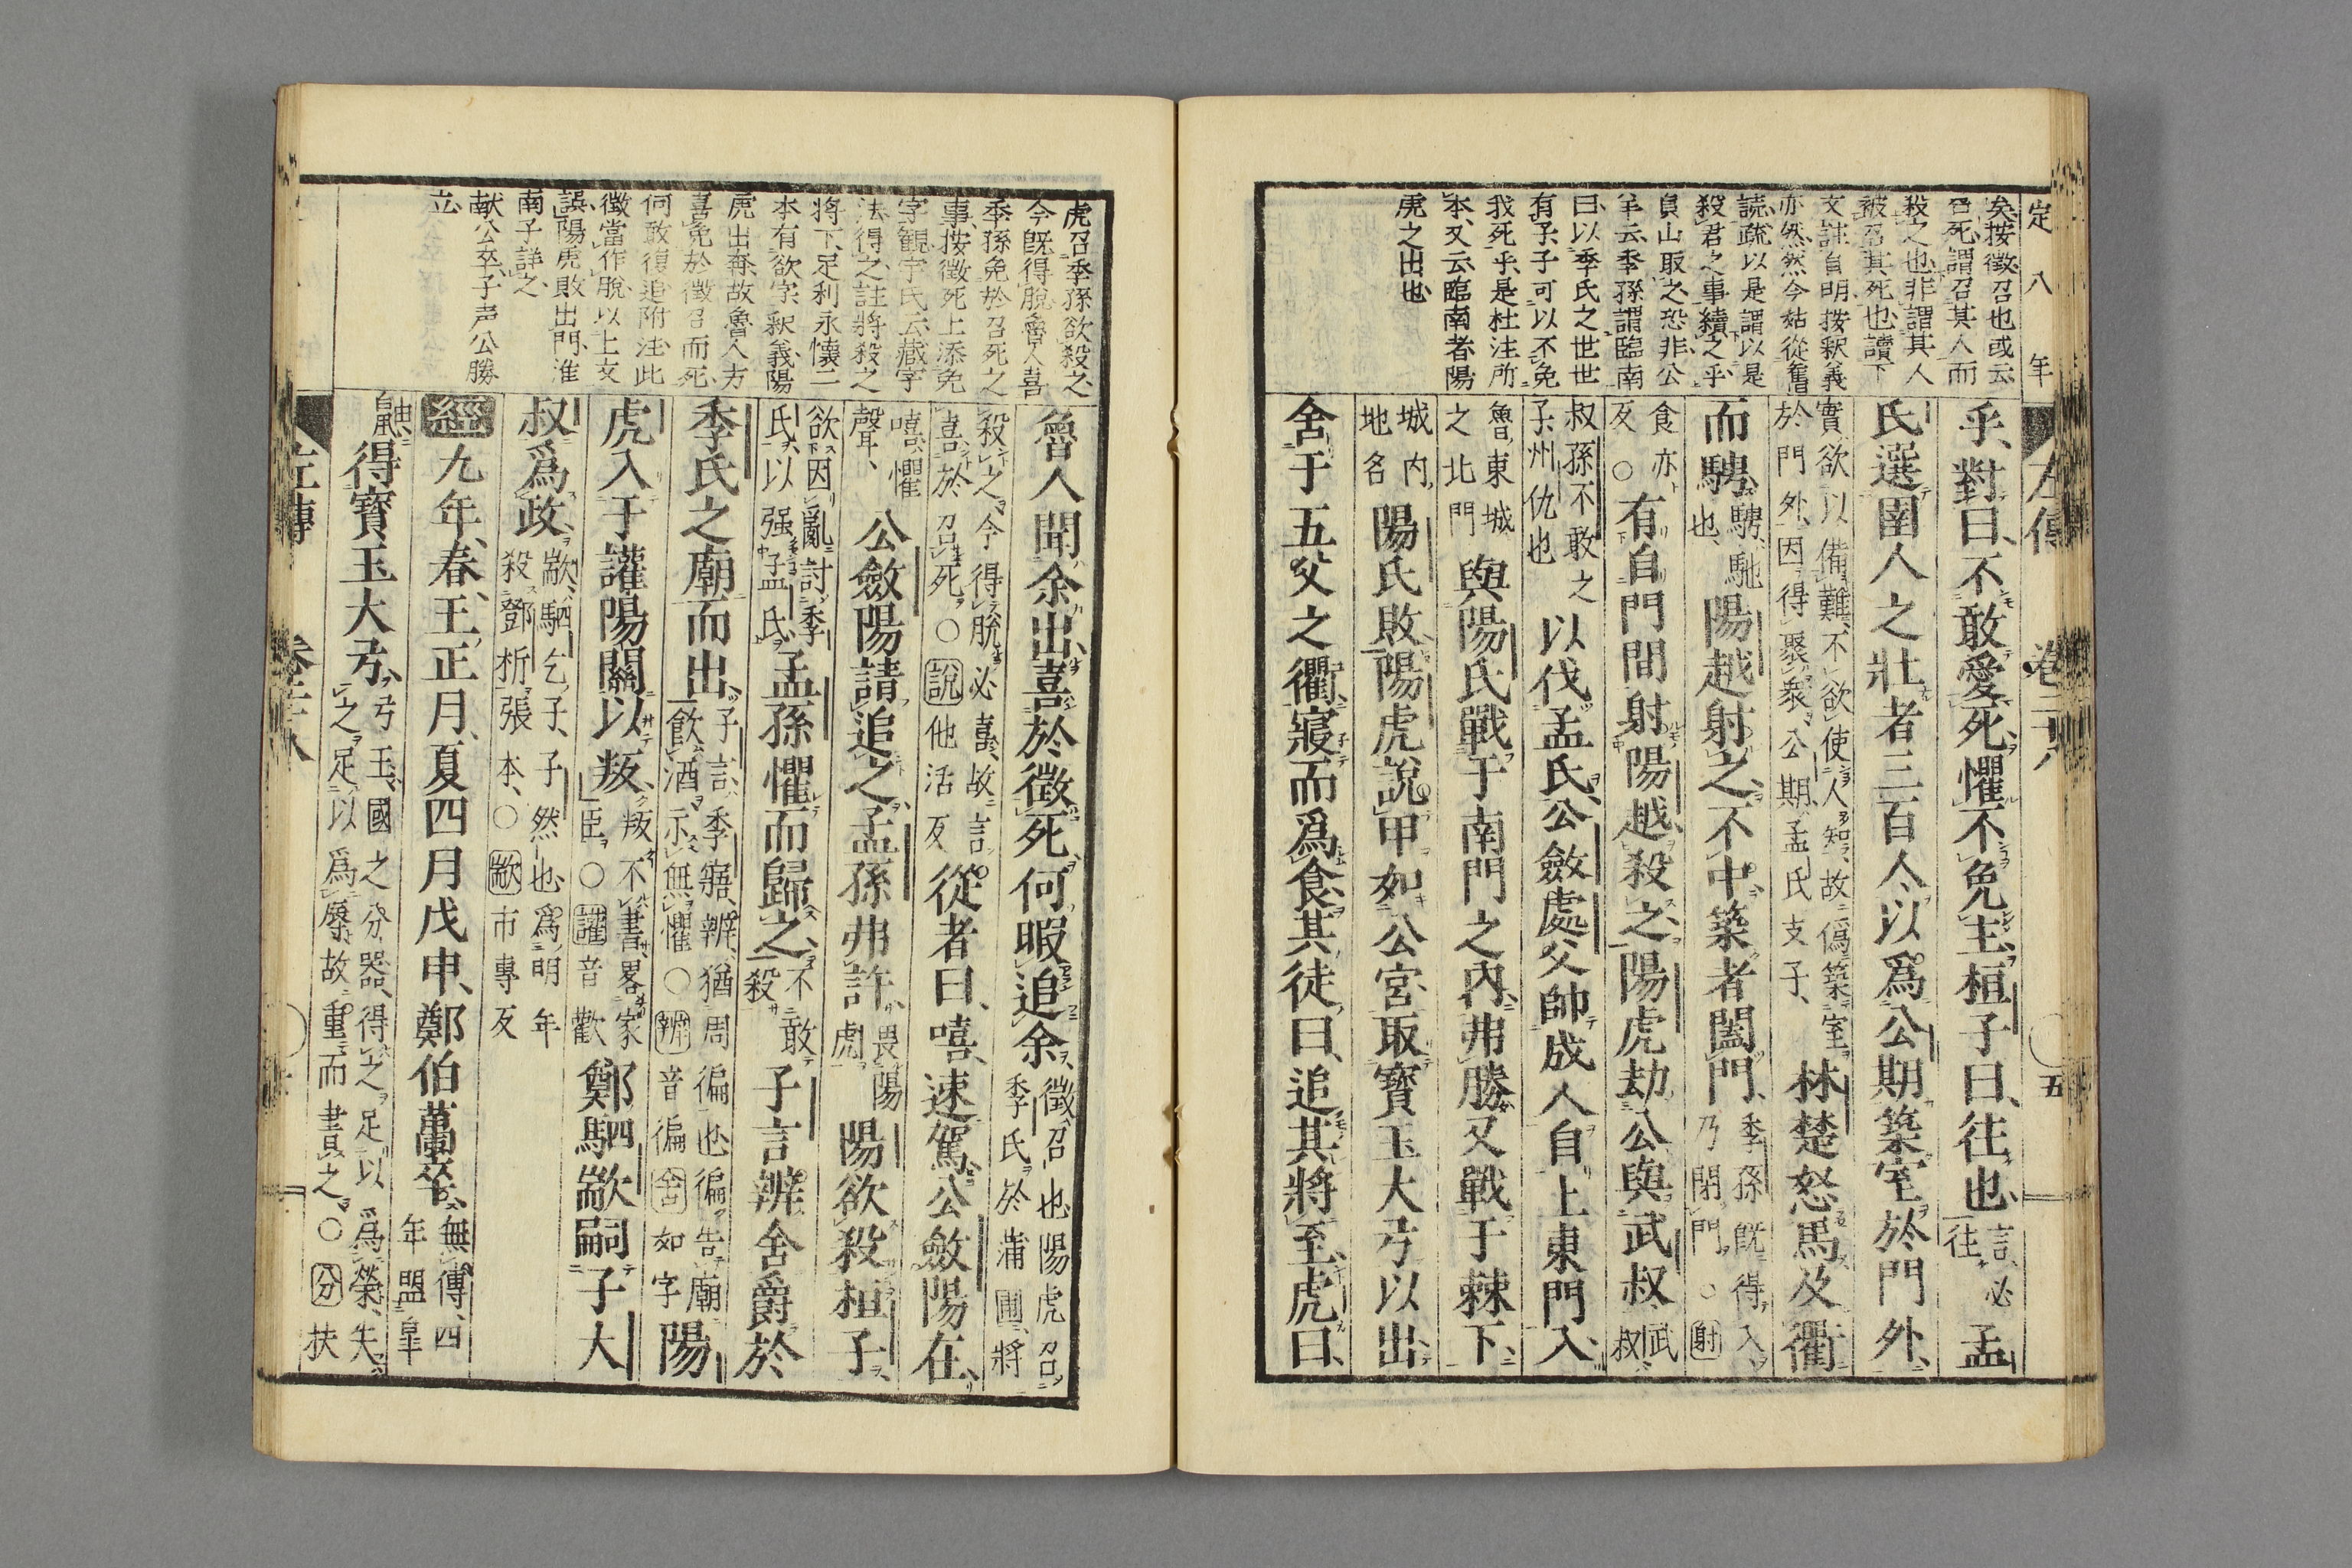 定八年
矣按徵召也或云
召死謂召其人而
殺之也非謂其人
被召其死也讀下
文註自明按釈義
亦然然今姑從舊
読疏以是謂以是
殺君之事續之乎
貟山取之恐非公
羊云季孫謂臨南
曰以季氏之世世
有子子可以不免
我死乎是杜注所
本又云臨南者陽
虎之出也
左傳 卷二十八 五
乎對曰不敢愛死懼不免主桓子曰往也言必往孟
氏選圉人之壯者三百人以爲公期築室於門外
實欲以備難不欲使人知故僞築室於門外因得聚衆公期孟氏支子林楚怒馬及衢
而騁騁馳也陽越射之不中築者闔門季孫既得入乃閉門○射
食亦反○有自門間射陽越殺之陽虎劫公與武叔武叔
叔孫不敢之子州仇也以伐孟氏公斂處父帥成人自上東門入
魯東城之北門與陽氏戰于南門之內弗勝又戰于棘下
城內地名陽氏敗陽虎說甲如公宮取寶玉大弓以出
舍于五父之衢寢而爲食其徒曰追其將至虎曰
虎召季孫欲殺之
今既得脫魯人喜
季孫免於召死之
事按徵死上添免
字観字氏云蔵字
法得之註將殺之
将下足利永懐二
本有欲字釈義陽
虎出奔故魯人方
喜免於徵召而死
何敢復追附注此
徵當作脫以上文
誤陽虎敗出門淮
南子詳之
献公卒子声公勝
立
魯人聞余出喜於徵死何暇追余徵召也陽虎召季氏於蒲圃將
殺之今得脫必喜故言喜於召死○說他活反從者曰嘻速駕公斂陽在
嘻懼聲公斂陽請追之孟孫弗許畏陽虎陽欲殺桓子
欲因亂討季氏以强孟氏孟孫懼而歸之不敢殺子言辨舍爵於
季氏之廟而出子言季寤辨猶周徧也徧告廟飲酒示無懼○辨音徧舍如字陽
虎入于讙陽關以叛叛不書畧家臣○讙音歡鄭駟歂嗣子大
叔爲政歂駟乞子子然也爲明年殺鄧析張本○歂市專反
經九年春王正月夏四月戊申鄭伯蠆卒無傳四年盟皋
鼬得寶玉大弓弓玉國之分器得之足以爲榮失之足以爲辱故重而書之○分扶
左傳 卷二十八